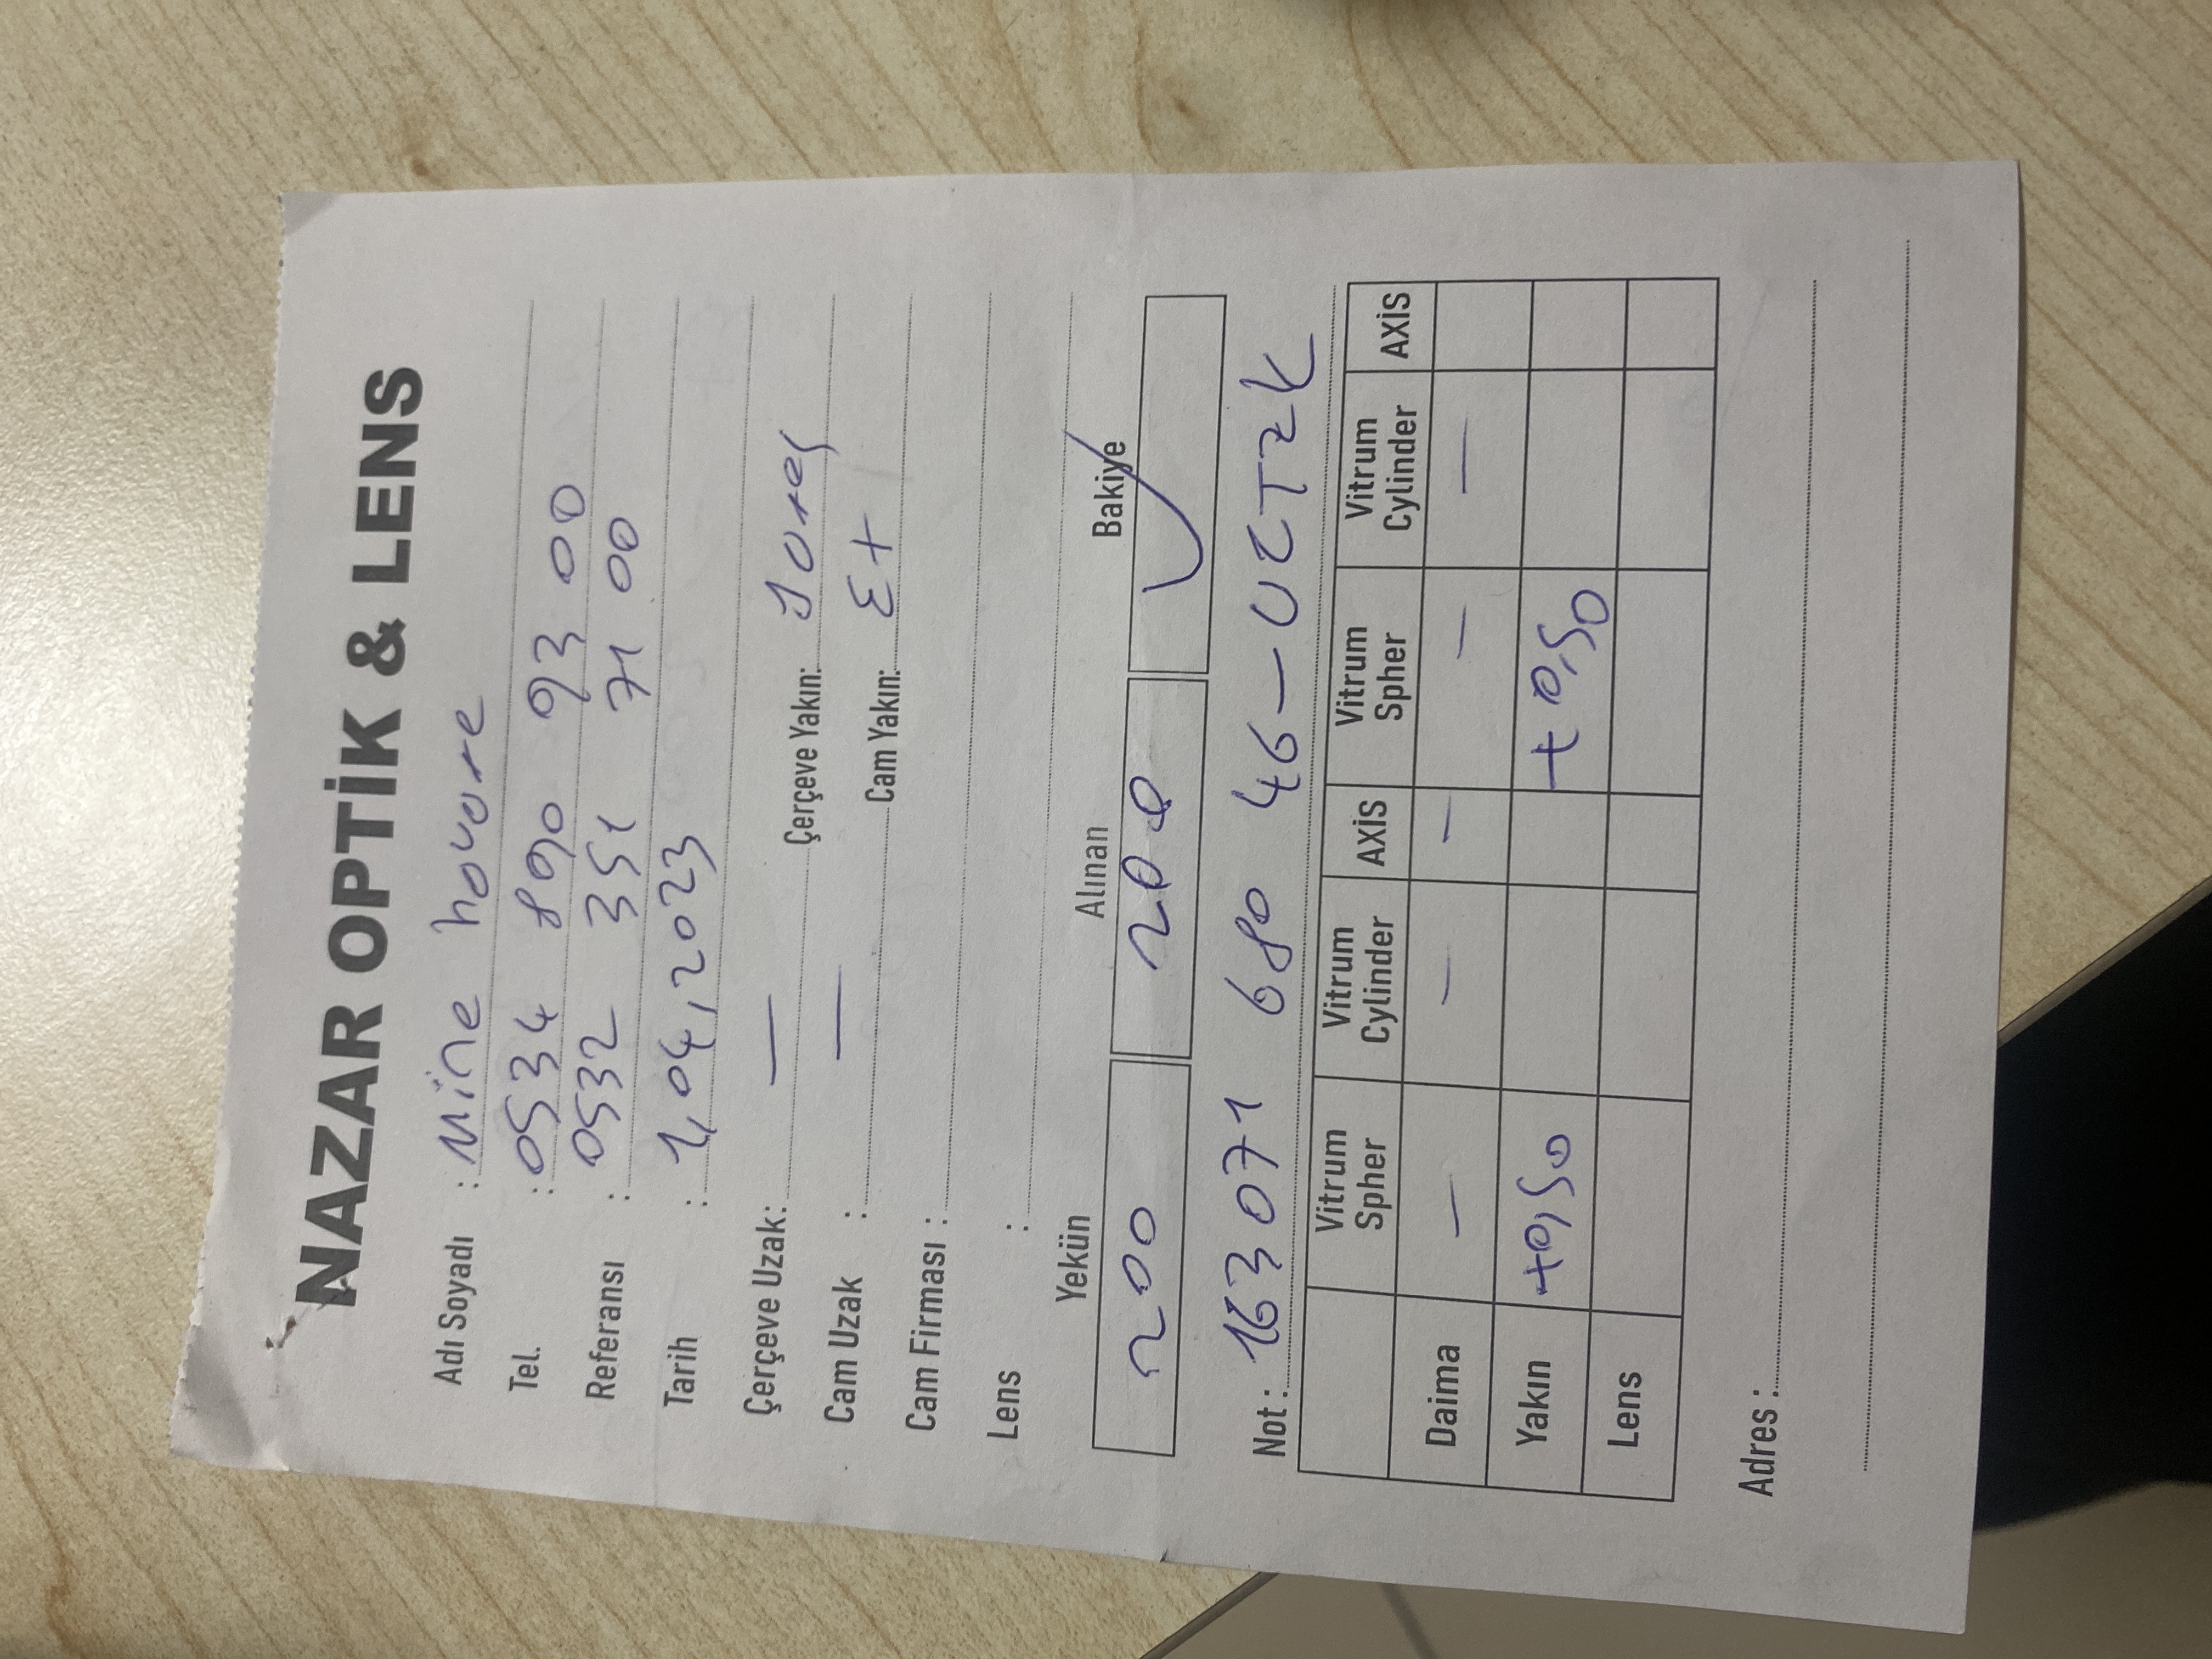 NAZAR OPTİK & LENS
Adı Soyadı : Mine
Tel. : 0534 890 93 00
Referansı : 0532 351 71 00
Tarih : 1,04,2023
Çerçeve Uzak: — Çerçeve Yakın:
Cam Uzak : — Cam Yakın: Ex
Cam Firması :
Lens :
Yekün Alınan Bakiye
200 200 ✓
Not : 163071 680 46 –
Vitrum Spher Vitrum Cylinder AXİS Vitrum Spher Vitrum Cylinder AXİS
Daima — — — — —
Yakın +0,50 +0,50
Lens
Adres :